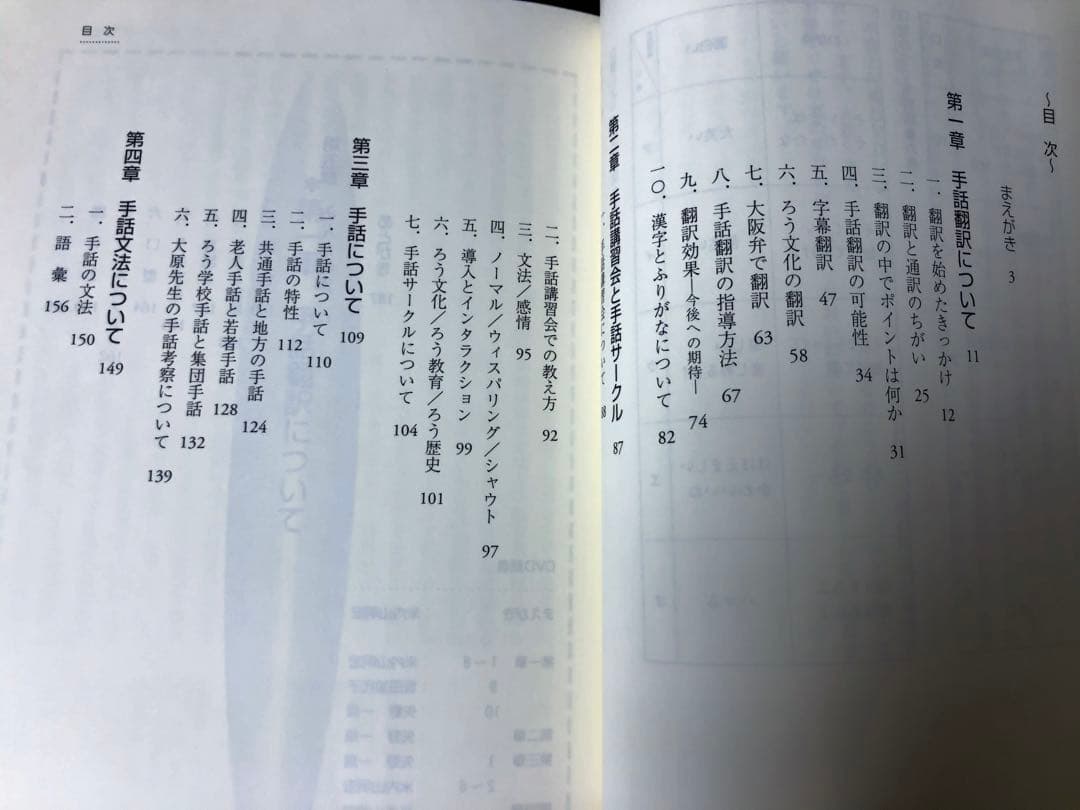 〜目 次〜
まえがき 3
第一章 手話翻訳について 11
一．翻訳を始めたきっかけ 12
二．翻訳と通訳のちがい 25
三．翻訳の中でポイントは何か 31
四．手話翻訳の可能性 34
五．字幕翻訳 47
六．ろう文化の翻訳 58
七．大阪弁で翻訳 63
八．手話翻訳の指導方法 67
九．翻訳効果―今後への期待― 74
一〇．漢字とふりがなについて 82
第二章 手話講習会と手話サークル 87
目 次
二．手話講習会での教え方 92
三．文法／感情 95
四．ノーマル／ウィスパリング／シャウト 97
五．導入とインタラクション 99
六．ろう文化／ろう教育／ろう歴史 101
七．手話サークルについて 104
第三章 手話について 109
一．手話について 110
二．手話の特性 112
三．共通手話と地方の手話 124
四．老人手話と若者手話 128
五．ろう学校手話と集団手話 132
六．大原先生の手話考察について 139
第四章 手話文法について 149
一．手話の文法 150
二．語彙 156